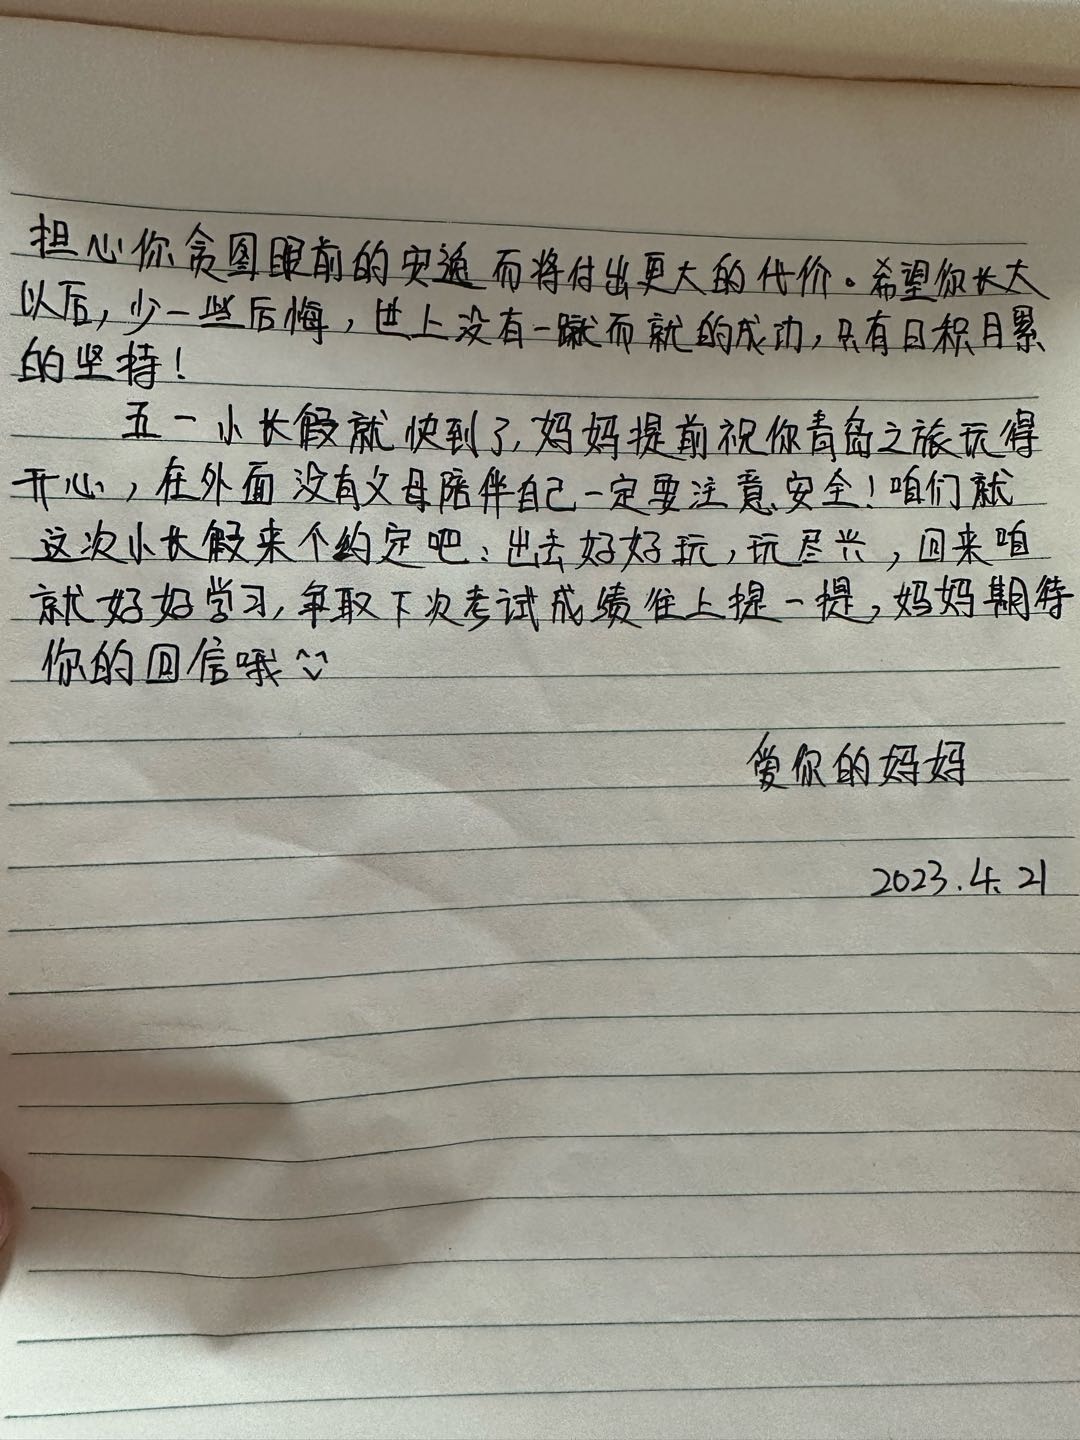 担心你贪图眼前的安逸而将付出更大的代价。希望你长大
以后，少一些后悔，世上没有一蹴而就的成功，只有日积月累
的坚持！
五一小长假就快到了，妈妈提前祝你青岛之旅玩得
开心，在外面没有父母陪伴自己一定要注意安全！咱们就
这次小长假来个约定吧：出去好好玩，玩尽兴，回来咱
就好好学习，争取下次考试成绩往上提一提，妈妈期待
你的回信哦
爱你的妈妈
2023.4.21